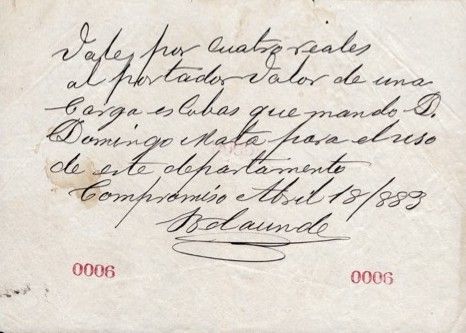 Vale, por cuatro reales
al portador Valor de una
Carga escobas que mando D.
Domingo Mata para el uso
de este departamento
Compromiso Abril 18/883
Belaunde
0006
0006